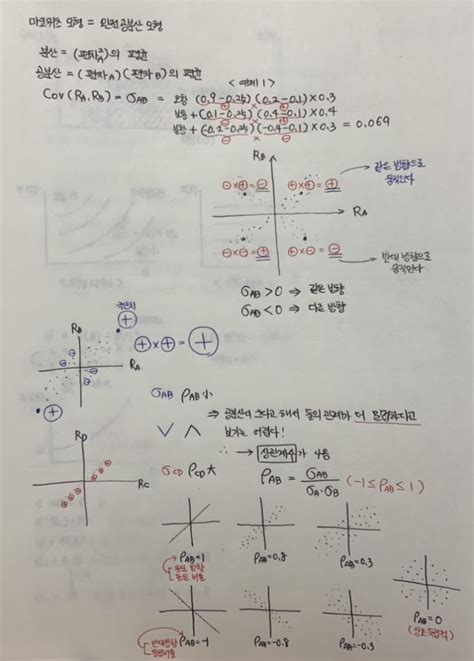 마코위츠 모형 = 완전 공분산 모형
분산 = (편차²)의 평균
공분산 = (편차A)(편차B)의 평균
< 예제 1 >
Cov(RA, RB) = σAB = 호황 (0.9-0.25)(0.2-0.1)×0.3
보통 +(0.1-0.25)(0.4-0.1)×0.4
불황 +(-0.2-0.25)(-0.4-0.1)×0.3 = 0.069
RB
⊖×⊕=⊖ ⊕×⊕=⊕ → 같은 방향으로
움직인다
RA
⊖×⊖=⊕ ⊕×⊖=⊖ → 반대 방향으로
움직인다
σAB > 0 ⇒ 같은 방향
σAB < 0 ⇒ 다른 방향
⊕
RB
⊕×⊕=⊕
RA
⊖
⊖
⊖
⊕
σAB ρAB 小
⇒ 공분산이 크다고 해서 둘의 관계가 더 밀접하다고
보기는 어렵다!
∨ ∧
∴ → 상관계수가 사용
RD
RC
σCD ρCD 大
ρAB = σAB / σA·σB (-1≤ρAB≤1)
ρAB=1
동일 방향
동일 비율
ρAB=0.8
ρAB=0.3
ρAB=0
(상호독립적)
반대방향
동일비율
ρAB=-1
ρAB=-0.8
ρAB=-0.3